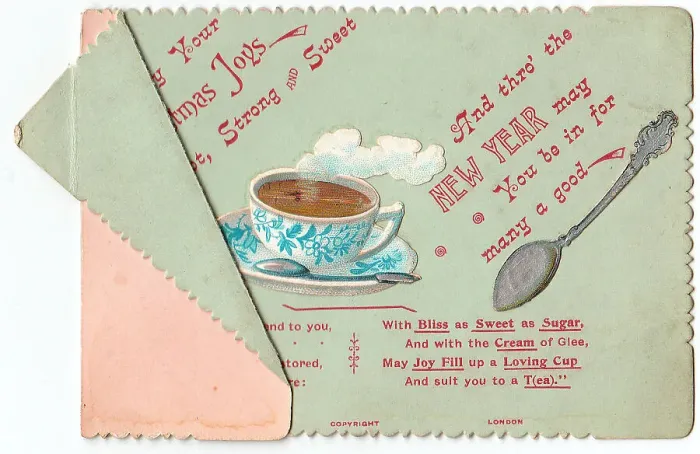 g Your
tmas Joys
t, Strong AND Sweet
And thro' the
NEW YEAR may
You be in for
many a good
and to you,
tored,
e:
With Bliss as Sweet as Sugar,
And with the Cream of Glee,
May Joy Fill up a Loving Cup
And suit you to a T(ea)."
COPYRIGHT LONDON